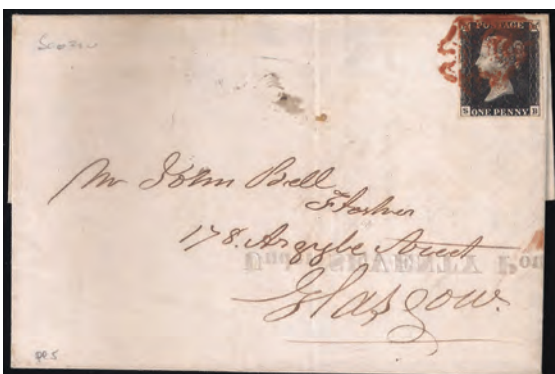 POSTAGE
S B
ONE PENNY
Mr John Bell
Flesher
178. Argyle Street
Glasgow.